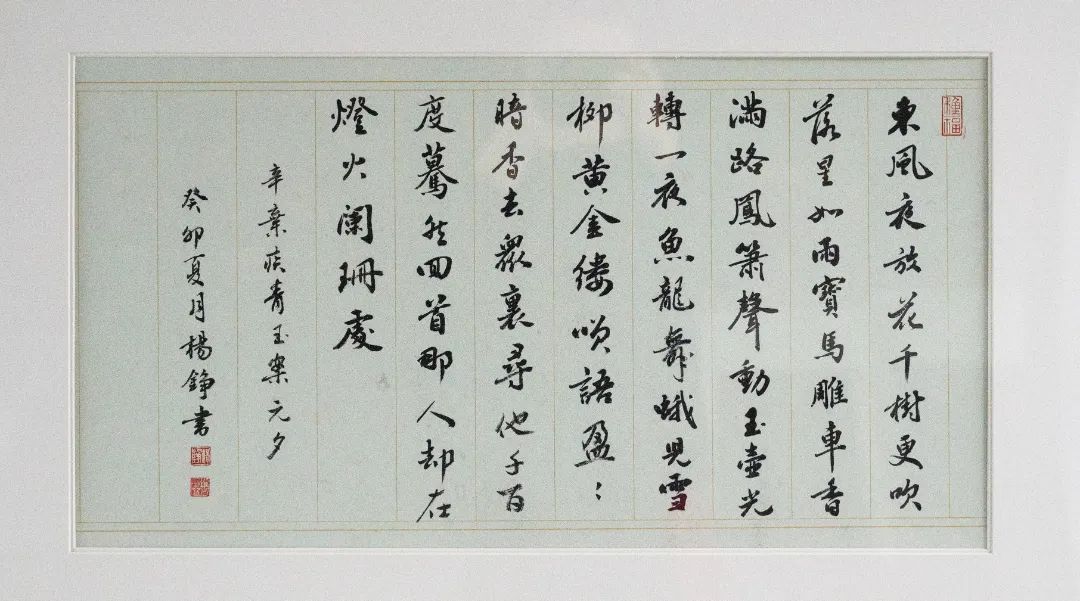 種福
東風夜放花千樹更吹
落星如雨寶馬雕車香
滿路鳳簫聲動玉壺光
轉一夜魚龍舞蛾兒雪
柳黄金縷咲語盈〻
暗香去眾裏尋他千百
度驀然回首那人却在
燈火闌珊處
辛棄疾青玉案元夕
癸卯夏月楊錚书